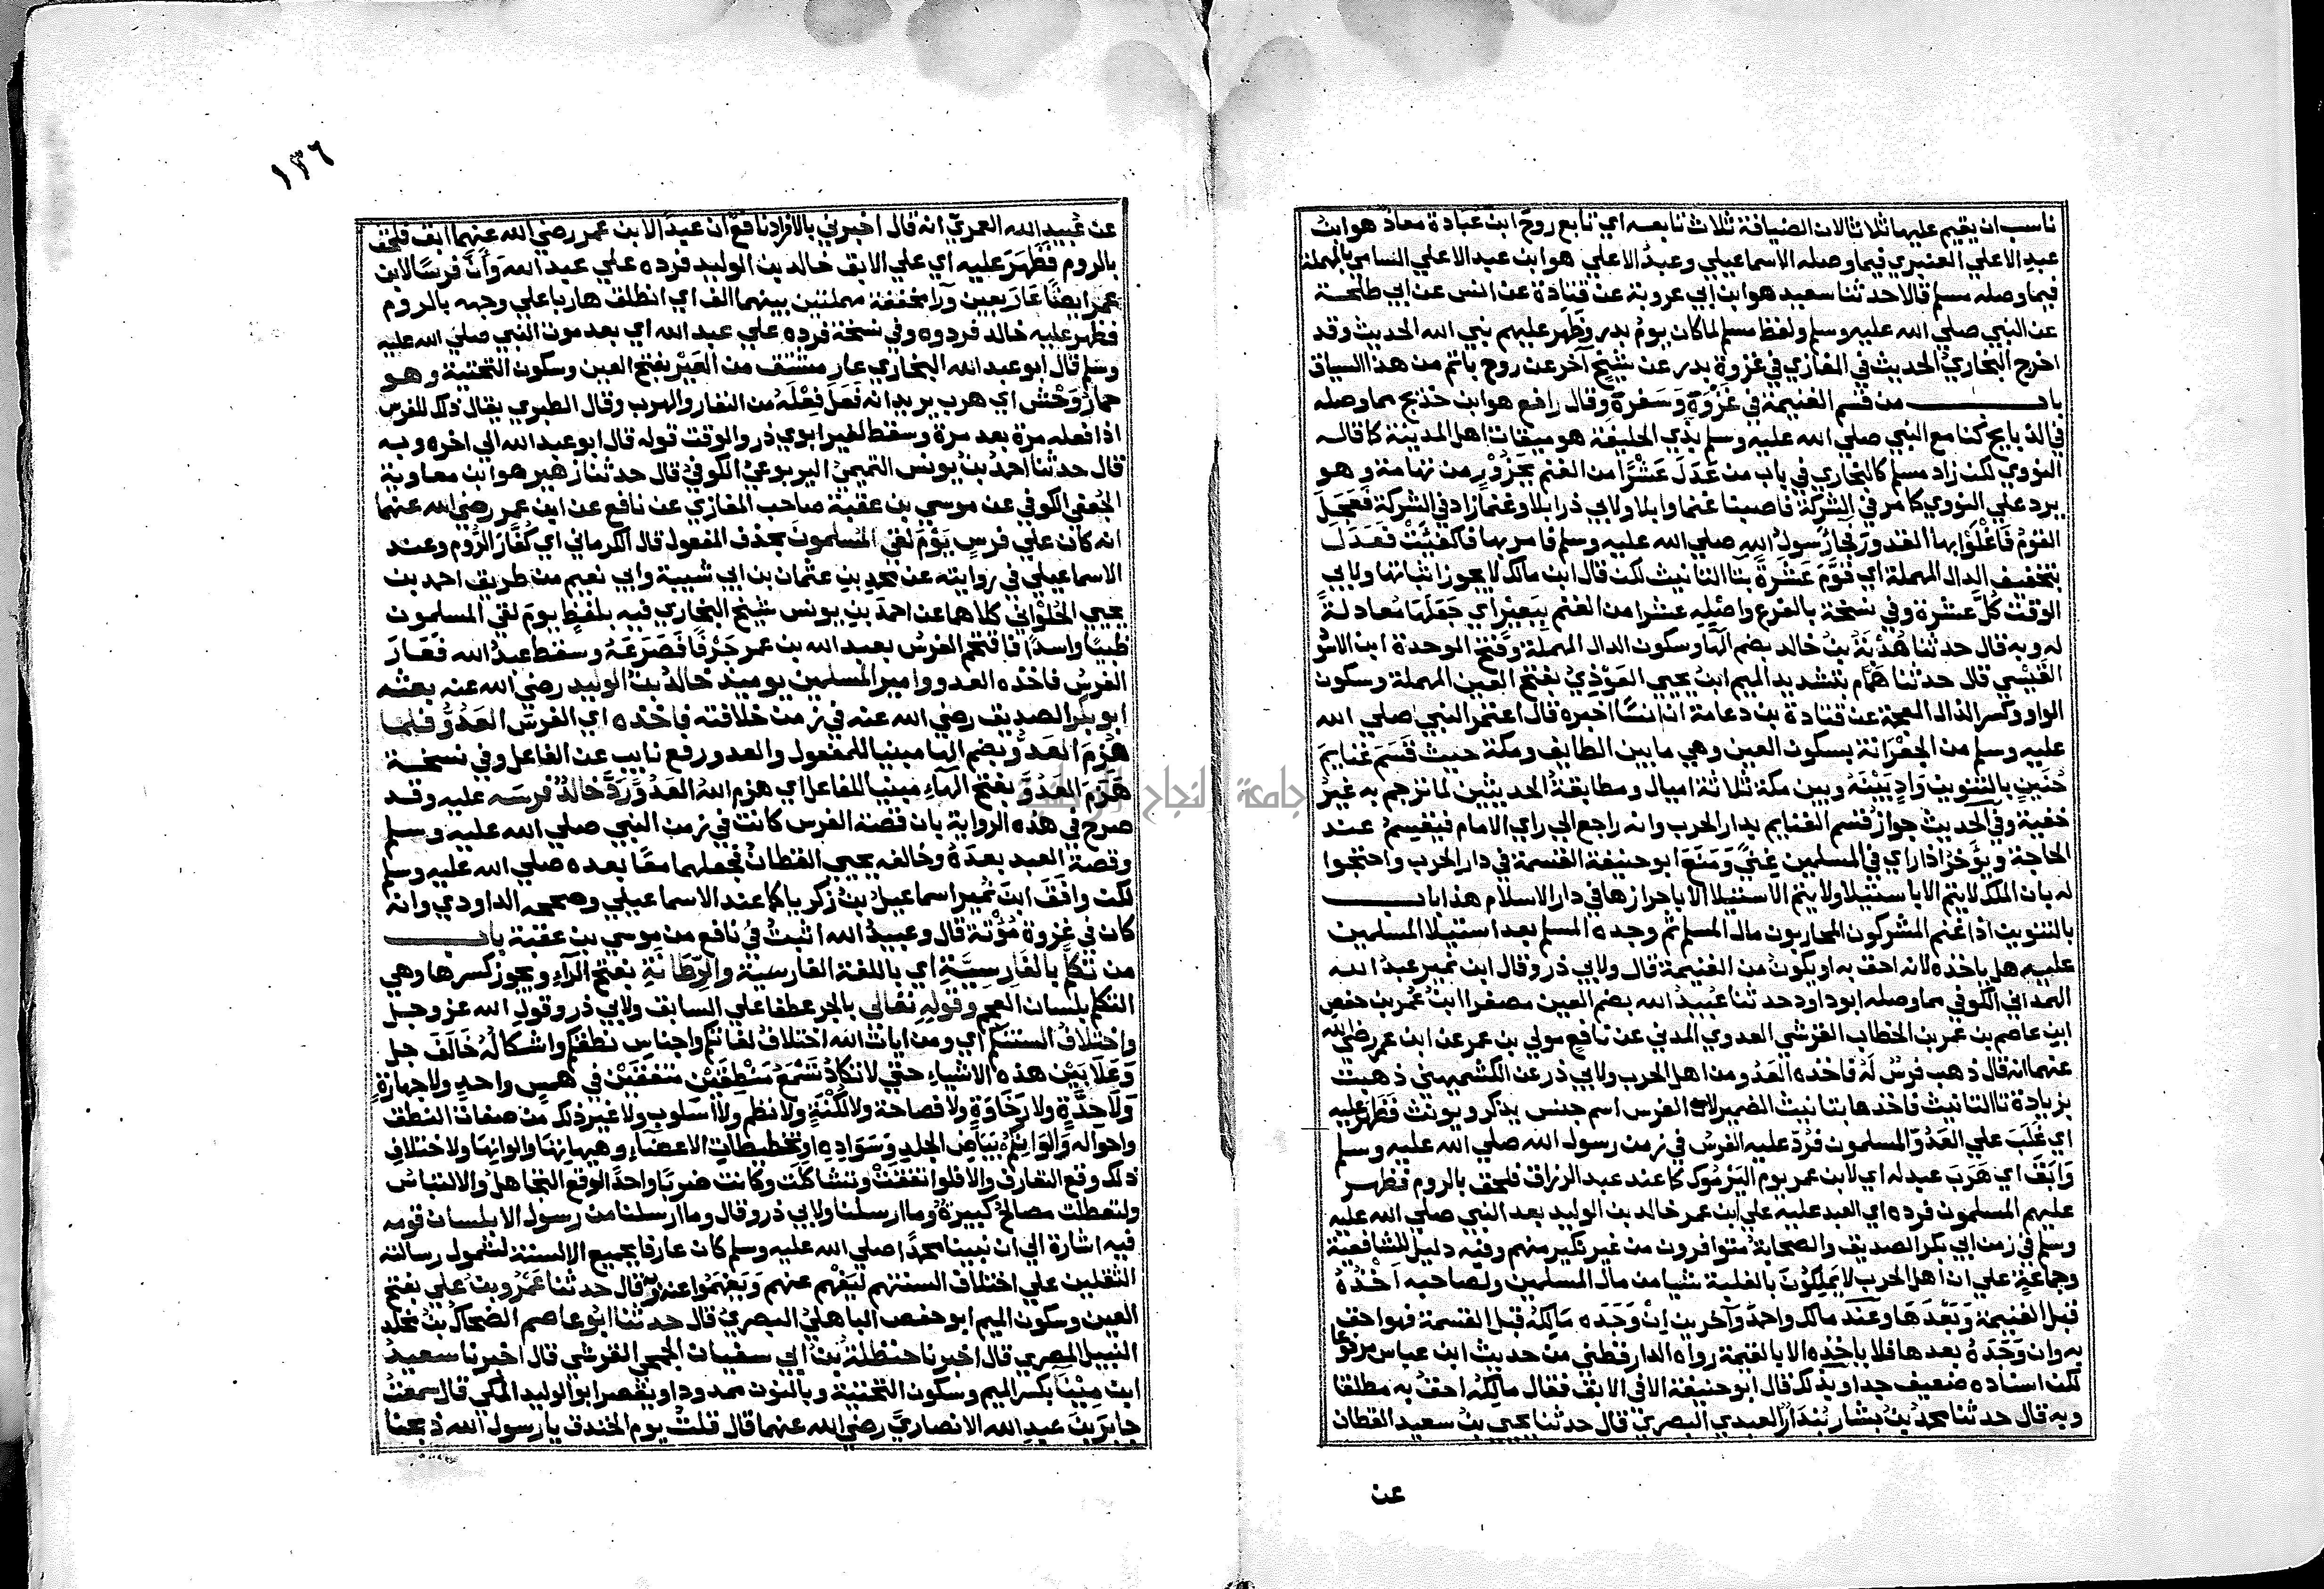 ناسب ان يقيم عليها ثلاثا لان الضيافة ثلاث تابعه اي تابع روح ابن عبادة معاذ هو ابن
عبد الاعلي العنبري فيما وصله الاسماعيلي وعبد الاعلي هو ابن عبد الاعلي السامي بالمهملة
فيما وصله مسلم قالا حدثنا سعيد هو ابن ابي عروبة عن قتادة عن انس عن ابي طلحة
عن النبي صلي الله عليه وسلم ولفظ مسلم لما كان يوم بدر وظهر عليهم نبي الله الحديث وقد
اخرج البخاري الحديث في المغازي في غزوة بدر عن شيخ آخر عن روح باتم من هذا السياق
باب من قسم الغنيمة في غَزْوِهِ وَسَفَرِه وقال رافع هو ابن خديج مما وصله
في الذبايح كنا مع النبي صلي الله عليه وسلم بذي الحليفة هو ميقات اهل المدينة كما قاله
النووي لكن زاد مسلم كالبخاري في باب من عَدَلَ عَشْرًا من الغنم بجَزُوْرٍ من تهامة وهو
يرد علي النووي كما مر في الشركة فاصبنا غنما وابلا ولابي ذر ابلا وغنما زاد في الشركة فَعَجِلَ
القومُ فَاَغْلَوا بها القدور فجاء رَسولُ اللهِ صلي الله عليه وسلم فامر بها فاكفيَتْ فَعَدَلَ
بتخفيف الدال المهملة اي قَوَّمَ عَشْرَةً بتا التانيث لكن قال ابن مالك لا يجوز اثباتها ولابي
الوقت كُلَّ عشرة وفي نسخة بالفرع واصْلِه عشرا من الغنم بِبَعِيْرٍ اي جَعَلَهَا مُعادلةً
له وبه قال حدثنا هُدْبَةُ بنُ خالد بضم الها وسكون الدال المهملة وفتح الموحدة ابن الاسود
القَيْسِي قال حدثنا هَمَّام بتشديد الميم ابنُ يحيي العَوْذِيُ بفتح العين المهملة وسكون
الواو وكسر الذال المعجمة عن قتادة بن دعامة ان انسًا اخبره قال اعتمر النبي صلي الله
عليه وسلم من الجِعْرَانة بسكون العين وهي ما بين الطايف ومكة حيث قَسَمَ غنايمَ
حُنَينٍ بالتنوين وَادٍ بَيْنَهُ وبين مكة ثلاثة اميال ومطابقةُ الحديثين لما ترجم به غيرُ
خفية وفي الحديث جوازُ قسم الغنايم بدار الحرب وانه راجع الي راي الامام فيَقسِمُ عند
الحاجة ويؤخرُ اذا راي في المسلمين غِنيً وَمَنَعَ ابو حنيفة القسمة في دار الحرب واحتجوا
له بان الملك لا يتم الا باستيلا ولا يتم الاستيلا الا باحرازها في دار الاسلام هذا باب
بالتنوين اذا غنم المشركون المحاربون مال المسلم ثم وجده المسلم بعد استيلا المسلمين
عليهم هل ياخذه لانه احق به او يكونُ من الغنيمة قال ولابي ذر وقال ابن نمير عبدُ الله
الهمداني الكوفي مما وصله ابو داود حدثنا عُبيدُ الله بضم العين مصغرا ابنُ عُمر بن حفص
ابن عاصم بن عمر بن الخطاب القرشي العدوي المدني عن نافع مولي بن عمر عن ابن عمر رضي الله
عنهما انه قال ذهب فرسٌ لَهُ فاخذه العَدُو من اهل الحرب ولابي ذر عن الكشميهني ذهبت
بزيادة تا التانيث فاخذها بتانيث الضمير لان الفرس اسم جنس يذكر ويونث فَظَهر عليه
اي غَلَبَ علي العَدُوّ المسلمون فرُدَّ عليه الفرسُ في زمن رسول الله صلي الله عليه وسلم
وَاَبَقَ اي هَرَبَ عبد له اي لابن عمر يوم اليَرْمُوك كما عند عبد الرزاق فلحق بالروم فظهر
عليهم المسلمون فرده اي العبد عليه علي ابن عمر خالد بن الوليد بعد النبي صلي الله عليه
وسلم في زمن ابي بكر الصديق والصحابةُ متوافرون من غير نكير منهم وفيه دليل للشافعية
وجماعةٍ علي ان اهل الحرب لا يَملِكُونَ بالغلبة شيا من مال المسلمين ولصاحبه اَخْذُهُ
قبل الغنيمة وَبَعْدَهَا وعند مالك واحمدَ وآخرين اِنْ وَجَدَه مَالِكُهُ قبل القسمة فهو احق
به وان وَجَدَهُ بعدها فلا ياخذه الا بالقيمة رواه الدارقطني من حديث ابن عباس مرفوعا
لكن اسناده ضعيف جدا وبذلك قال ابو حنيفة الا في الابق فقال مالِكُه احقُ به مطلقا
وبه قال حدثنا محمدُ بنُ بشار بُندَارُ العبدي البصري قال حدثنا يحيي بنُ سعيد القطان
عن
١٣٦
عن عُبيدِ الله العمريّ انه قال اخبرني بالافراد نافع ان عبدًا لابن عمر رضي الله عنهما ابق فلحق
بالروم فَظَهَرَ عليه اي علي الابق خالد بن الوليد فرده علي عبد الله وَاَنَّ فرسًا لابن
عمر ايضًا عَارَ بعين ورا مخففة مهملتين بينهما الف اي انطلق هاربا علي وجهه بالروم
فظهر عليه خالد فردوه وفي نسخة فرده علي عبد الله اي بعد موت النبي صلي الله عليه
وسلم قال ابو عبد الله البخاري عار مشتق من العَيْرِ بفتح العين وسكون التحتية وهو
حمارُ وَحْشٍ اي هرب يريد انه فَعَلَ فِعْلَهُ من النفار والهرب وقال الطبري يقال ذلك للفرس
اذا فعله مرة بعد مرة وسقط لغير ابوي ذر والوقت قوله قال ابو عبد الله الي اخره وبه
قال حدثنا احمدُ بنُ يونس التميميُ اليربوعيُ الكوفيُ قال حدثنا زهير هو ابن معاوية
الجُعفي الكوفي عن موسي بن عقبة صاحب المغازي عن نافع عن ابن عمر رضي الله عنهما
انه كان علي فرسٍ يَوْمَ لقي المُسلمونَ بحذف المفعول قال الكرماني اي كُفَّارَ الرُّومِ وعند
الاسماعيلي في روايته عن محمد بن عثمان بن ابي شيبة وابي نعيم من طريق احمد بن
يحيي الحُلْوَاني كلاهما عن احمد بن يونس شيخ البخاري فيه بلفظٍ يوم لقي المسلمون
ظبيًا واسدًا فاقتحم الفرسُ بعبد الله بن عمر جَرْفًا فَصَرَعَهُ وسقط عبدُ الله فَعَارَ
الفرسُ فاخذه العدو وامير المسلمين يوميذ خالدُ بنُ الوليد رضي الله عنه بعثه
ابو بكر الصديق رضي الله عنه في زمن خلافته فاخذه اي الفرسَ العَدُوُّ فلما
هُزِمَ العَدُوُّ بضم الها مبنيا للمفعول والعدو رفع نايب عن الفاعل وفي نسخة
هَزَمَ العَدُوَّ بفتح الهاء مبنيا للفاعل اي هزم اللهُ العَدُوَّ رَدَّ خالدٌ فرسَه عليه وقد
صرح في هذه الرواية بان قصة الفرس كانت في زمن النبي صلي الله عليه وسلم
وقصةَ العبد بعدَهُ وخالفه يحيي القطانُ فجعلهما معًا بعده صلي الله عليه وسلم
لكن وافَقَ ابنَ نُمير اسماعيلُ بنُ زكريا كما عند الاسماعيلي وصححه الداودي وانه
كان في غزوة مُؤْتة قال وعبيدُ الله اثبتُ في نافع من موسي بن عقبة باب
من تكلم بالفَارِسِيَّةِ اي باللغة الفارسية والرِّطَانَةِ بفتح الراء ويجوز كسرها وهي
التكلم بلسان العجم وقوله تعالي بالجر عطفا علي السابق ولابي ذر وقول الله عز وجل
واختلافُ السنتكم اي ومن ايات الله اختلافُ لغاتكم واجناسِ نطقكم واشكالُهُ خَالَفَ جل
وَعَلَا بَيْنَ هذه الاشياءِ حتي لا تكادُ تَسْمَعُ مَنْطِقَيْنِ متفقَيْنِ في همسٍ واحدٍ ولا جهارةٍ
وَلَا حِدَّةٍ ولا رَخَاوَةٍ ولا فصاحة ولا لُكْنَةٍ ولا نظمٍ ولا اسلوبٍ ولا غير ذلك من صفات النطق
واحواله وَالوَانِكم بَيَاضِ الجلدِ وَسَوَادِهِ او تخطيطات الاعضاءِ وهيياتها والوانها ولاختلاف
ذلك وقع التعارفُ والا فلو اتفقتْ وتشاكَلَت وكانت ضربًا واحدًا لوقع التجاهلُ والالتباسُ
ولتعطلت مصالحُ كبيرةٌ وما ارسلنا ولابي ذر وقال وما ارسلنا من رسول الا بلسان قومه
فيه اشارة الي ان نبينا محمدًا صلي الله عليه وسلم كان عارفا بجميع الالسنة لشمول رسالته
الثقلين علي اختلاف السنتهم ليَفْهَمَ عنهم وَيَفْهَمُوا عنه وبه قال حدثنا عَمْرُو بنُ علي بفتح
العين وسكون الميم ابو حفص الباهليُ البصريُ قال حدثنا ابُو عاصم الضحاكُ بنُ مَخْلَد
النبيل البصري قال اخبرنا حنظلةُ بنُ ابي سفيان الجمحي القرشي قال اخبرنا سعيدُ
ابن مِيْنَا بكسر الميم وسكون التحتية وبالنون ممدودا ويقصر ابو الوليد المكي قال سمعتُ
جابرَ بنَ عبد الله الانصاريَّ رضي الله عنهما قال قلتُ يوم الخندق يا رسول الله ذبحنا